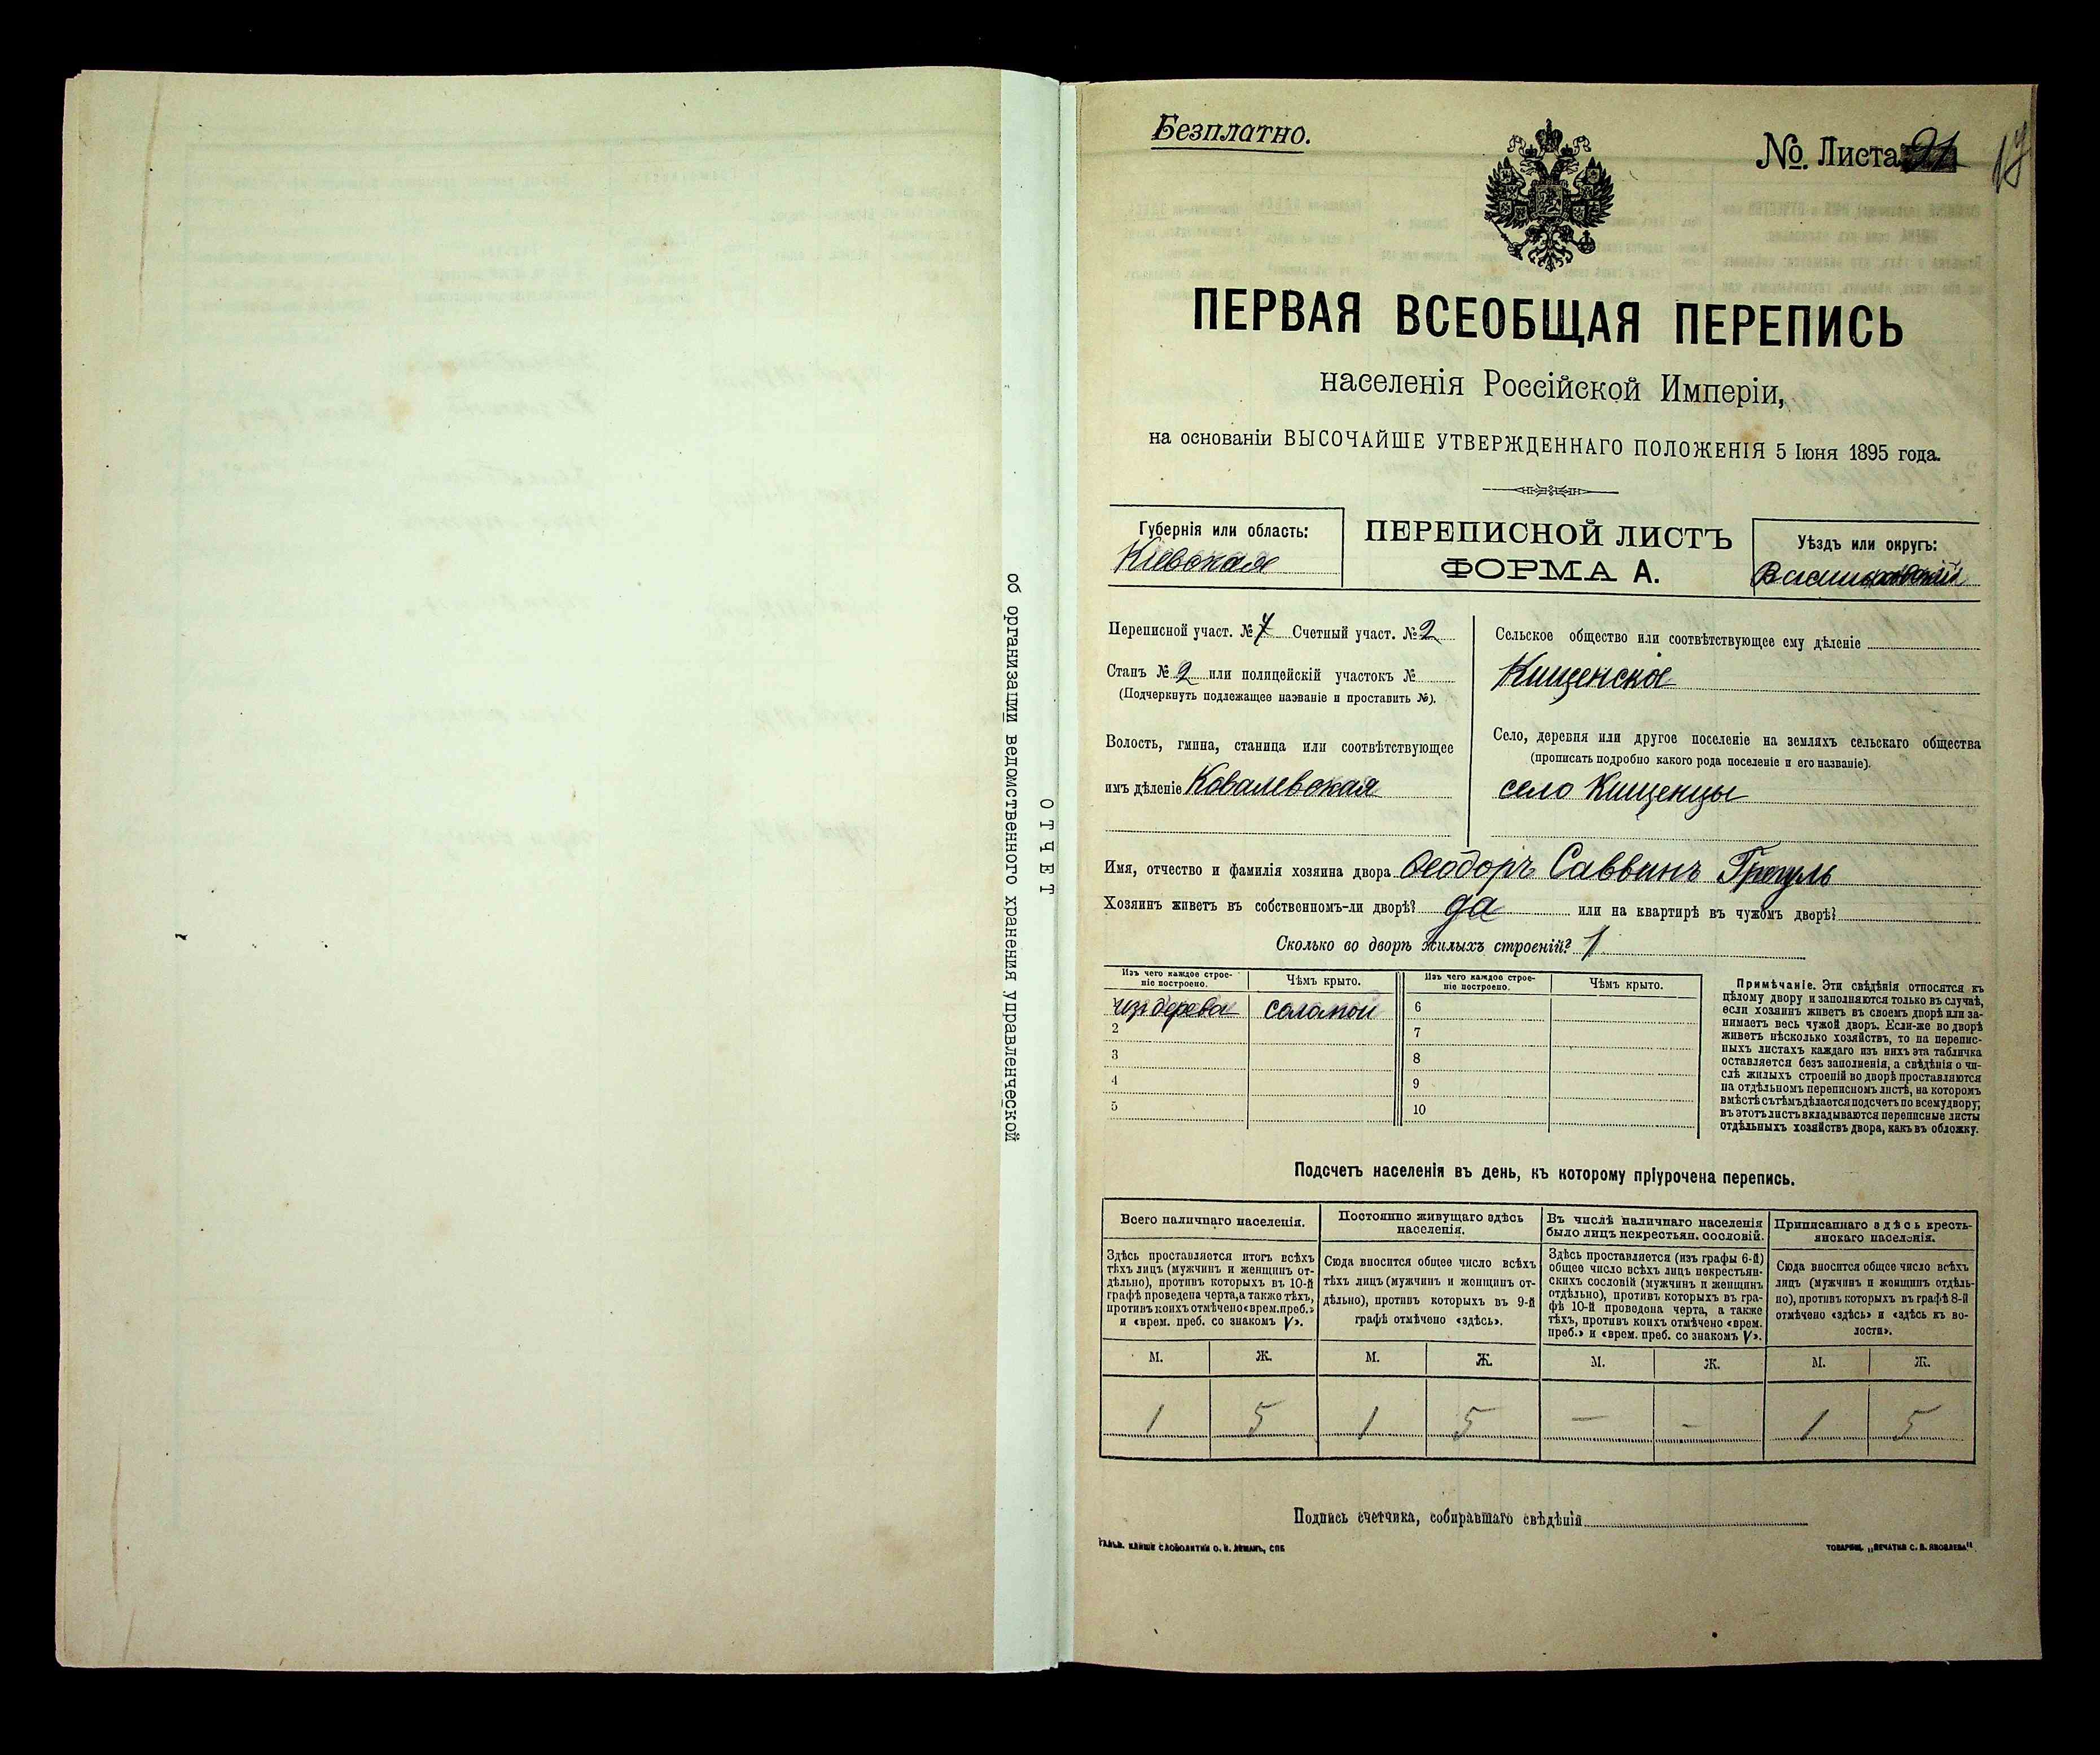 об организации ведомственного хранения управленческой
ОТЧЕТ
Безплатно.
№ Листа 21
ПЕРВАЯ ВСЕОБЩАЯ ПЕРЕПИСЬ
населенія Россійской Имперіи,
на основаніи ВЫСОЧАЙШЕ УТВЕРЖДЕННАГО ПОЛОЖЕНІЯ 5 Іюня 1895 года.
Губернія или область:
Кіевская
ПЕРЕПИСНОЙ ЛИСТЪ
ФОРМА А.
Уѣздъ или округъ:
Переписной участ. № 7 Счетный участ. № 2
Станъ № 2 или полицейскій участокъ №
(Подчеркнуть подлежащее названіе и проставить №).
Волость, гмина, станица или соотвѣтствующее
имъ дѣленіе Ковалевская
Сельское общество или соотвѣтствующее ему дѣленіе
Кищенское
Село, деревня или другое поселеніе на земляхъ сельскаго общества
(прописать подробно какого рода поселеніе и его названіе).
село Кищенцы
Имя, отчество и фамилія хозяина двора Ѳеодоръ Саввинъ
Хозяинъ живетъ въ собственномъ-ли дворѣ? да или на квартирѣ въ чужомъ дворѣ?
Сколько во дворѣ жилыхъ строеній? 1
Изъ чего каждое строе-
ніе построено.
Чѣмъ крыто.
Изъ чего каждое строе-
ніе построено.
Чѣмъ крыто.
из дерева соломой 6
2 7
3 8
4 9
5 10
Примѣчаніе. Эти свѣдѣнія относятся къ
цѣлому двору и заполняются только въ случаѣ,
если хозяинъ живетъ въ своемъ дворѣ или за-
нимаетъ весь чужой дворъ. Если-же во дворѣ
живетъ нѣсколько хозяйствъ, то на перепис-
ныхъ листахъ каждаго изъ нихъ эта табличка
оставляется безъ заполненія, а свѣдѣнія о чи-
слѣ жилыхъ строеній во дворѣ проставляются
на отдѣльномъ переписномъ листѣ, на которомъ
вмѣстѣ съ тѣмъ дѣлается подсчетъ по всему двору;
въ этотъ листъ вкладываются переписные листы
отдѣльныхъ хозяйствъ двора, какъ въ обложку.
Подсчетъ населенія въ день, къ которому пріурочена перепись.
Всего наличнаго населенія.
Здѣсь проставляется итогъ всѣхъ
тѣхъ лицъ (мужчинъ и женщинъ от-
дѣльно), противъ которыхъ въ 10-й
графѣ проведена черта, а также тѣхъ,
противъ коихъ отмѣчено «врем. преб.»
и «врем. преб. со знакомъ V».
Постоянно живущаго здѣсь
населенія.
Сюда вносится общее число всѣхъ
тѣхъ лицъ (мужчинъ и женщинъ от-
дѣльно), противъ которыхъ въ 9-й
графѣ отмѣчено «здѣсь».
Въ числѣ наличнаго населенія
было лицъ некрестьян. сословій.
Здѣсь проставляется (изъ графы 6-й)
общее число всѣхъ лицъ некрестьян-
скихъ сословій (мужчинъ и женщинъ
отдѣльно), противъ которыхъ въ гра-
фѣ 10-й проведена черта, а также
тѣхъ, противъ коихъ отмѣчено «врем.
преб.» и «врем. преб. со знакомъ V».
Приписаннаго здѣсь кресть-
янскаго населенія.
Сюда вносится общее число всѣхъ
лицъ (мужчинъ и женщинъ отдѣль-
но), противъ которыхъ въ графѣ 8-й
отмѣчено «здѣсь» и «здѣсь къ во-
лости».
М. Ж. М. Ж. М. Ж. М. Ж.
1 5 1 5 – – 1 5
Подпись счетчика, собиравшаго свѣдѣнія
ТОВАРИЩ. „ПЕЧАТНЯ С. П. ЯКОВЛЕВА"